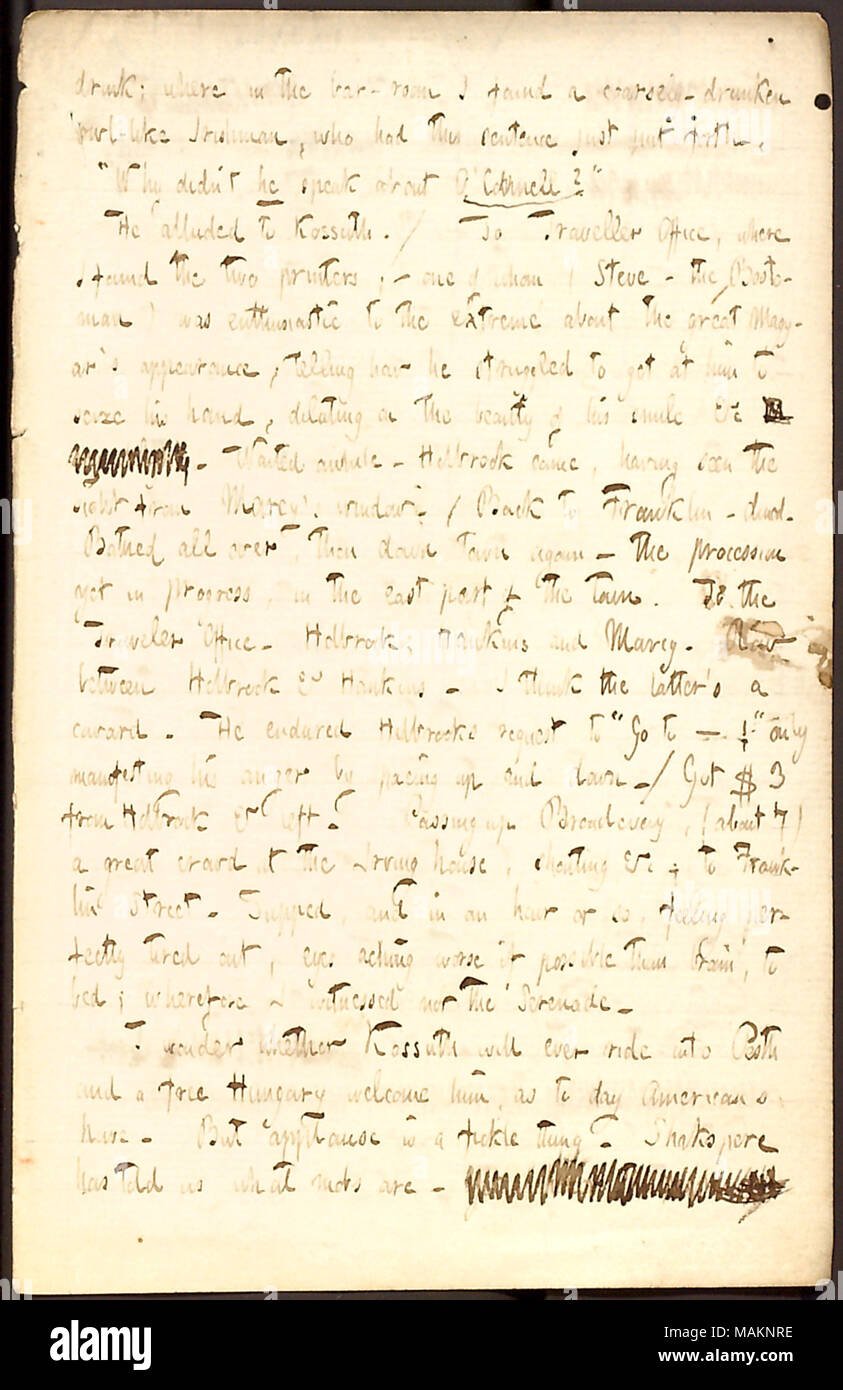 drink; where in the bar-room I found a coarsely-drunken
-like Irishman, who had this sentence just put forth.
"Why didn't he speak about O'Connell?"
He alluded to Kossuth. / To Traveller Office, where
I found the two printers; - one of whom (Steve - the Bosto-
man) was enthusiastic to the extreme about the great Magy-
ar's appearance, telling how he struggled to get at him to
seize his hand, dilating on the beauty of his smile &c
- Waited awhile - Holbrook came, having seen the
sight from Marcy's window. / Back to Franklin - dined.
Bathed all over, then down town again - the procession
yet in progress, in the east part of the town. To the
Traveler Office. Holbrook, Hankins and Marcy. Row
between Holbrook & Hankins - I think the latter's a
coward. He endured Holbrooks request to "Go to — !" only
manifesting his anger by pacing up and down. / Got $3
from Holbrook & left. Passing up Broadway, (about 7)
a great crowd at the Irving house, shouting &c; to Frank-
lin Street. Supped, and in an hour or so, feeling per-
fectly tired out, eyes aching worse if possible than brain, to
bed; wherefore I witnessed not the Serenade.
I wonder whether Kossuth will ever ride into Pesth
and a free Hungary welcome him, as to day Americans
have. But applause is a fickle thing. Shakspere
has told us what mobs are -
alamy
Image ID: MAKNRE
www.alamy.com